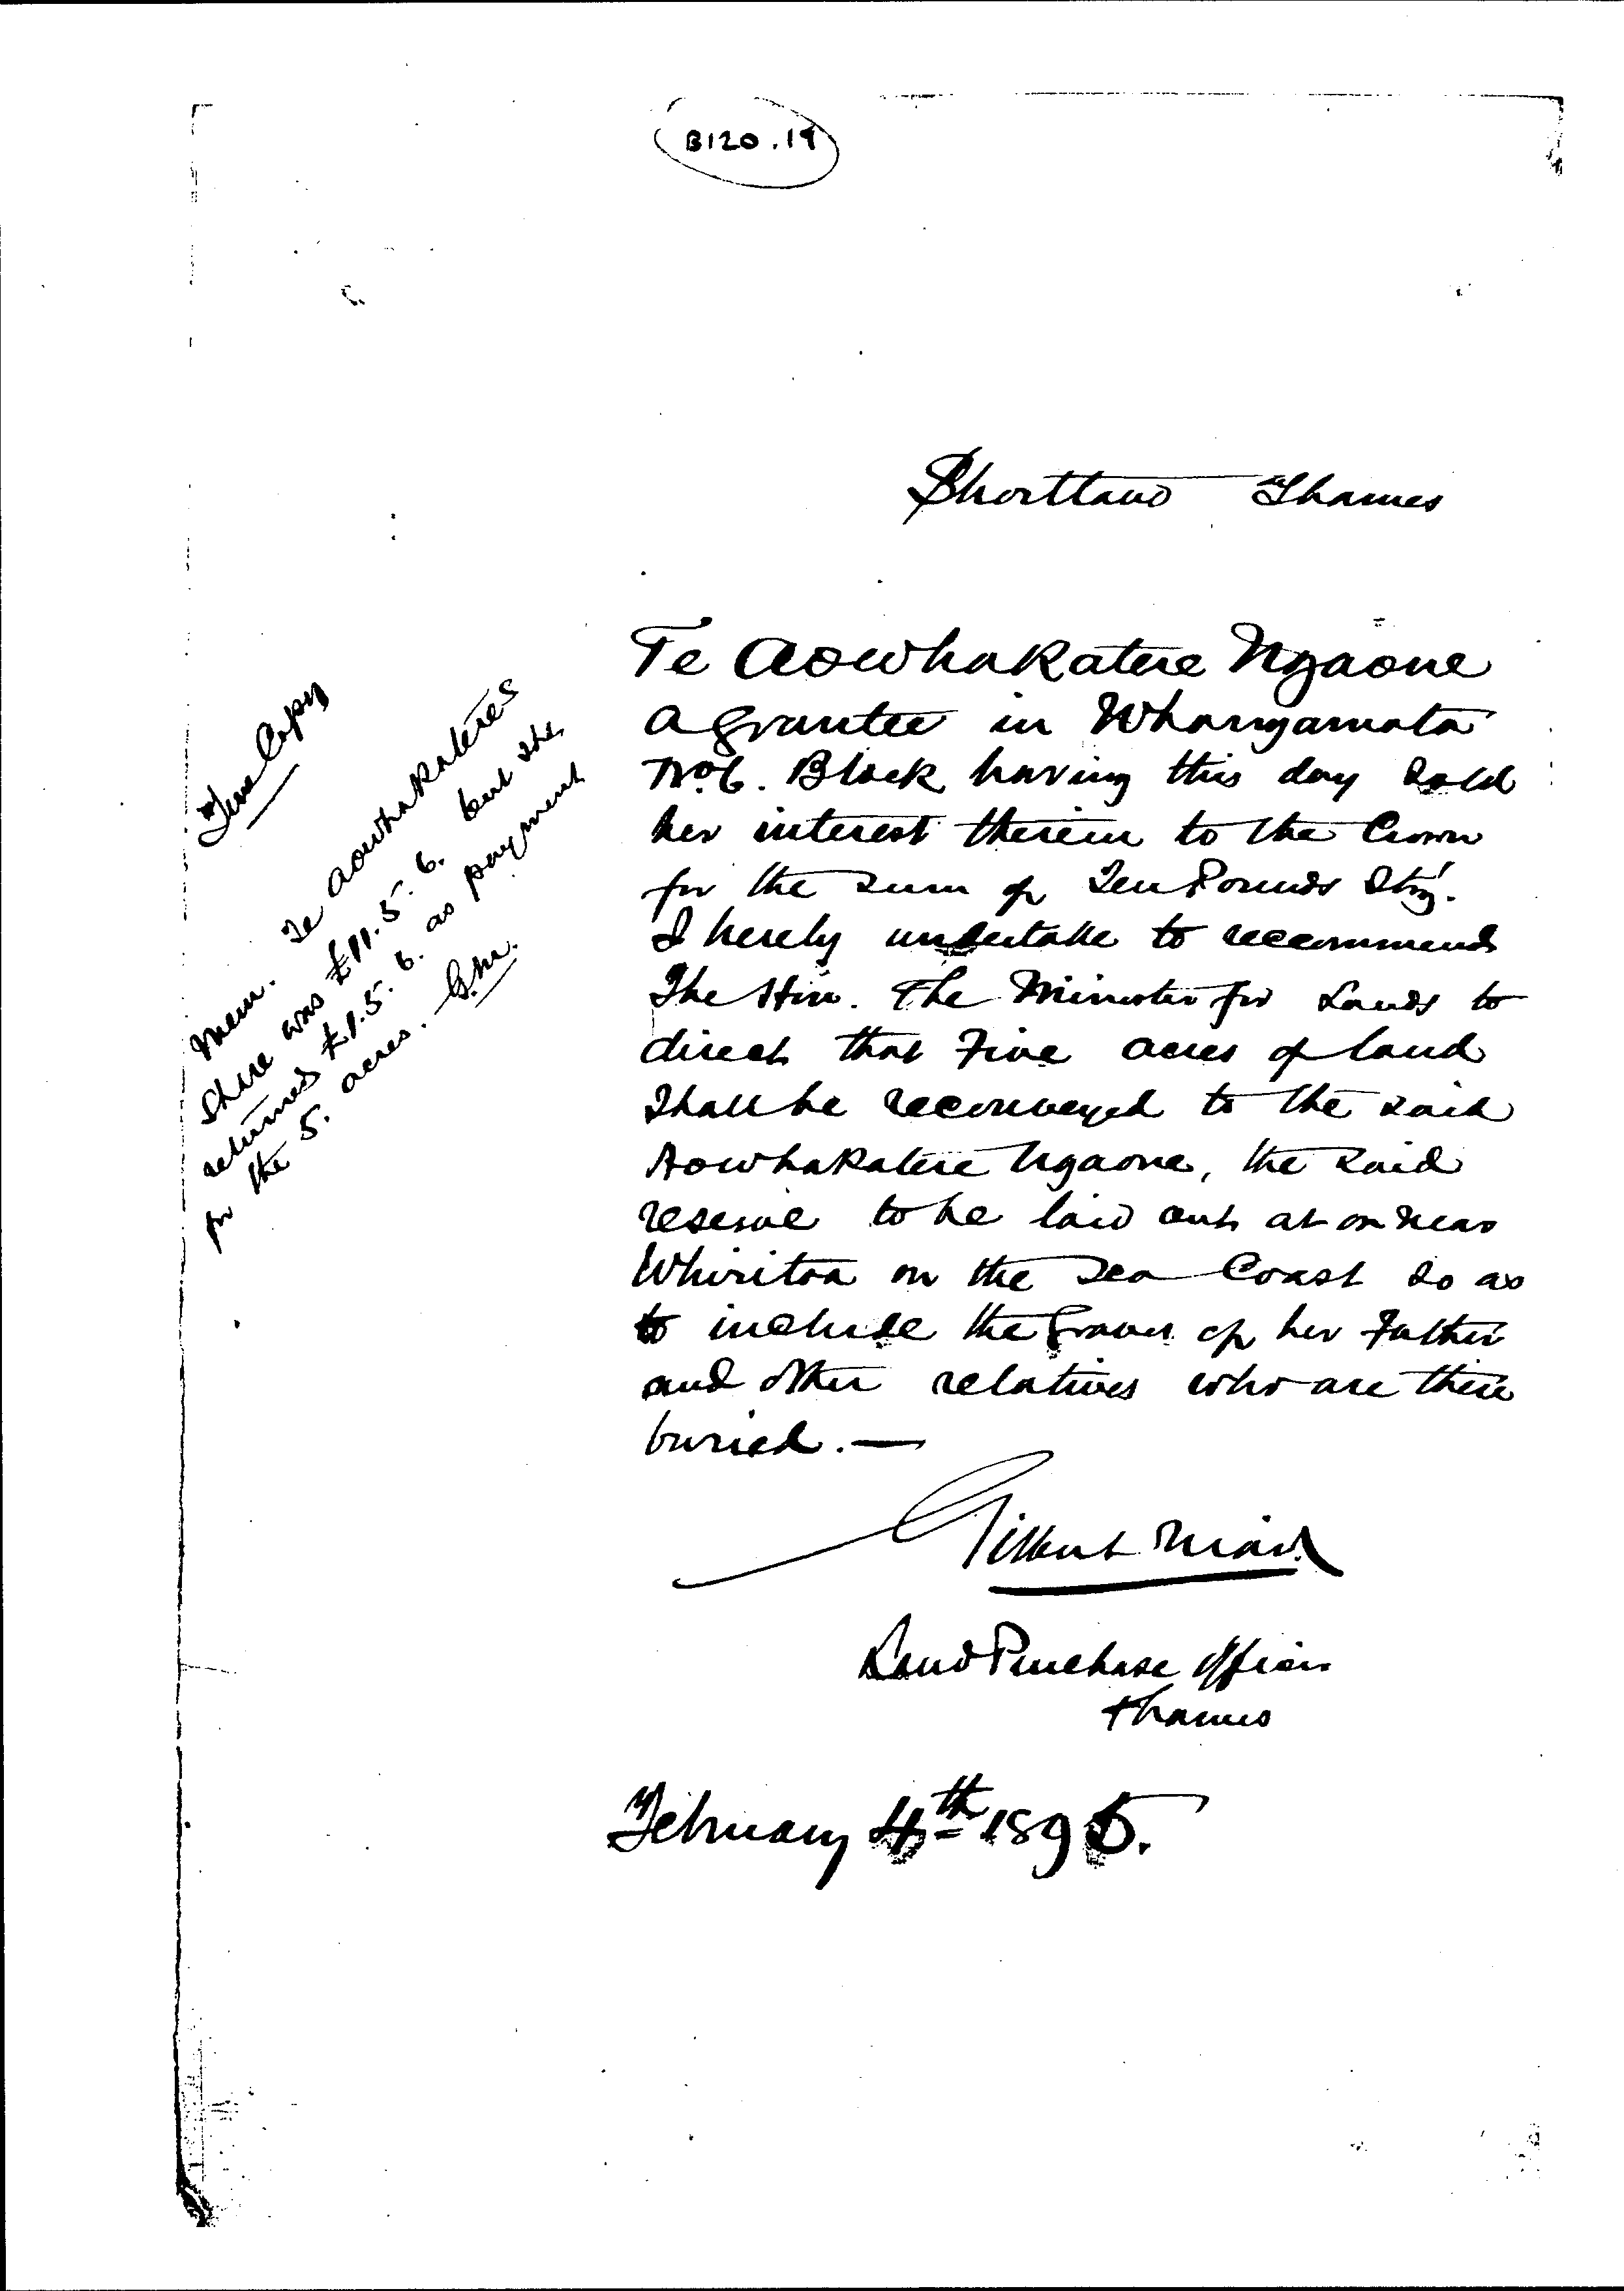 B120.19
Shortland Thames
Te Aowhakatere Ngaone
a grantee in Whangamata
No 6. Block having this day sold
her interest therein to the Crown
for the sum of Ten Pounds Stg.
I hereby undertake to reccommend
The Hon. The Minister for Lands to
direct that Five acres of land
shall be reconveyed to the said
Aowhakatere Ngaone, the said
reserve to be laid out at or near
Whiritoa on the Sea Coast so as
to include the Graves of her Father
and other relatives who are there
buried. —
Gilbert Mair
Land Purchase Officer
Thames
February 4th 1895.
True Copy
Mem. Te Aowhakatere's
share was £11. 5. 6. but she
returned £1. 5. 6. as payment
for the 5. acres. G.M.